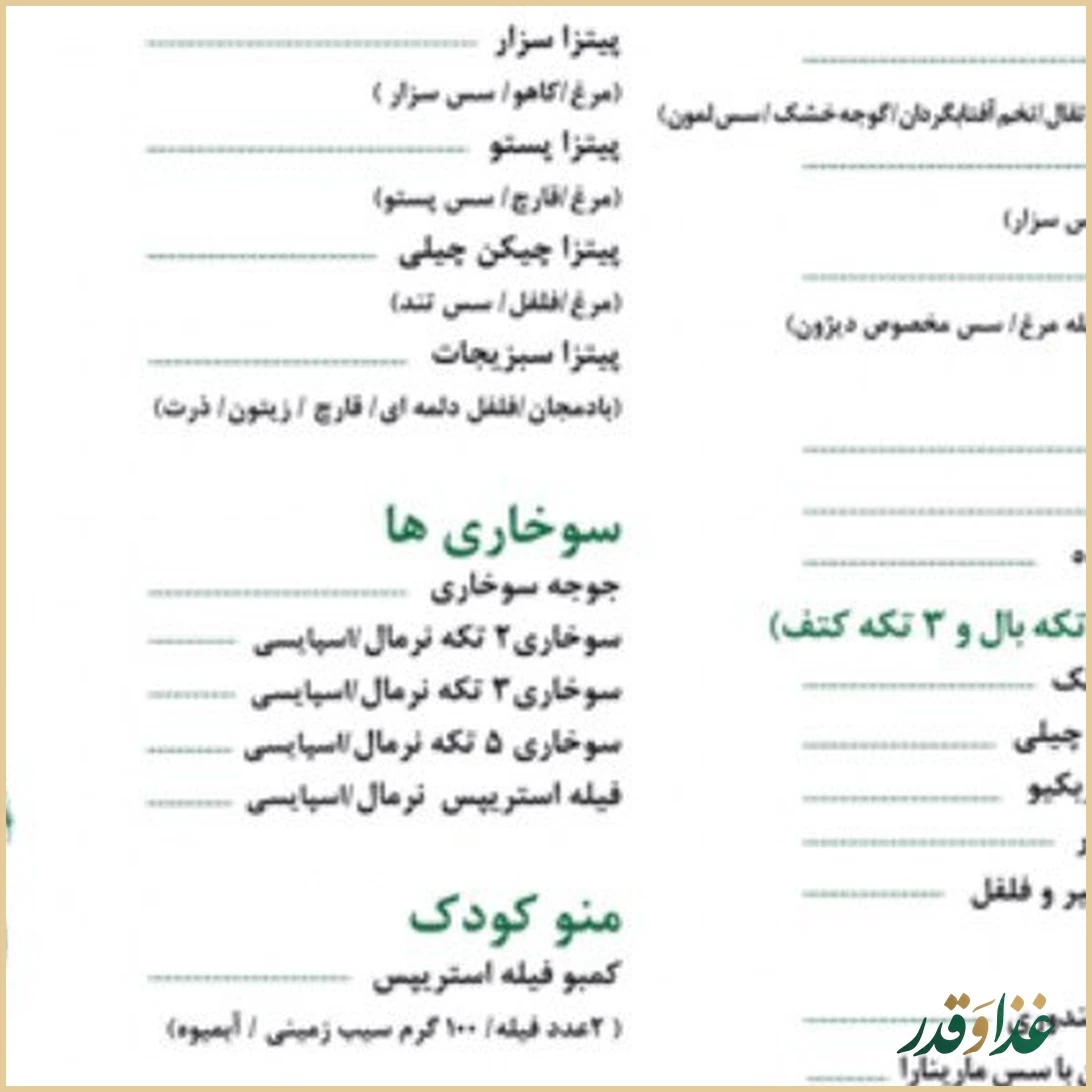 تخم آفتابگردان/گوجه خشک/سس لمون)
سزار)
مرغ/ سس مخصوص دیژون)
تکه بال و ۳ تکه کتف)
چیلی
و فلفل
با سس مارینارا
پیتزا سزار
(مرغ/کاهو/ سس سزار )
پیتزا پستو
(مرغ/قارچ/ سس پستو)
پیتزا چیکن چیلی
(مرغ/فلفل/ سس تند)
پیتزا سبزیجات
(بادمجان/فلفل دلمه ای/ قارچ / زیتون/ ذرت)
سوخاری ها
جوجه سوخاری
سوخاری۲ تکه نرمال/اسپایسی
سوخاری۳ تکه نرمال/اسپایسی
سوخاری ۵ تکه نرمال/اسپایسی
فیله استریپس نرمال/اسپایسی
منو کودک
کمبو فیله استریپس
( ۲عدد فیله/ ۱۰۰ گرم سیب زمینی / آبمیوه)
غذا وَ قدر